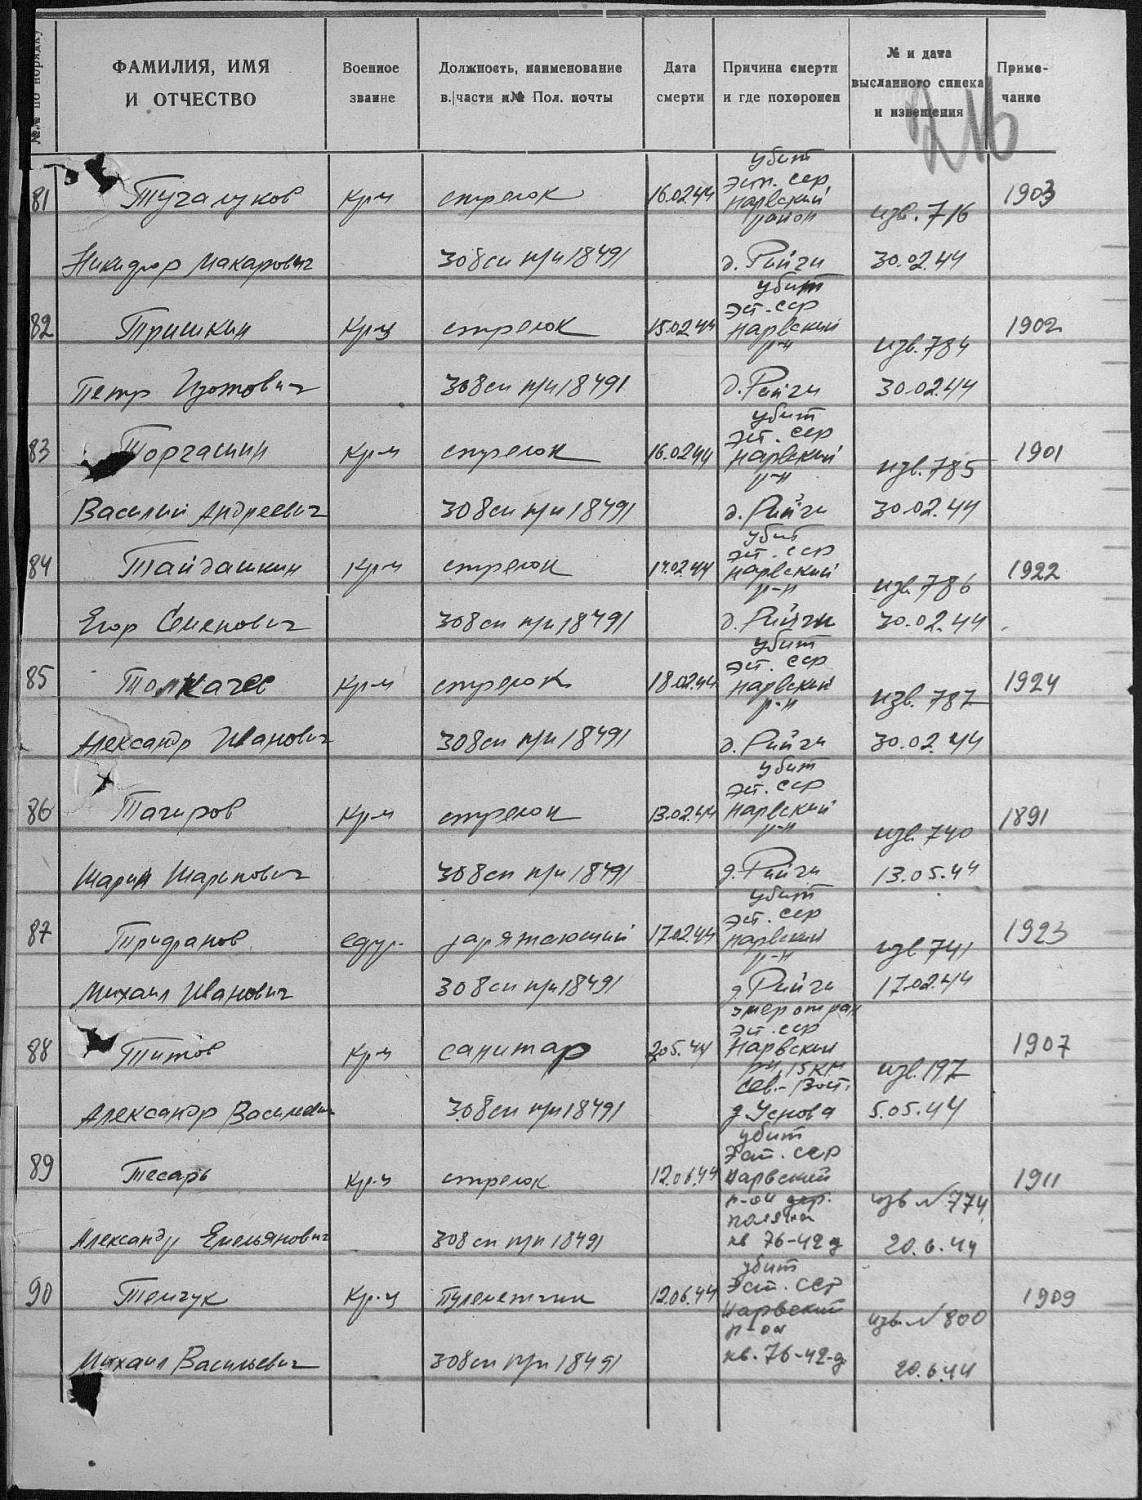 №№ по порядку
ФАМИЛИЯ, ИМЯ И ОТЧЕСТВО
Военное звание
Должность, наименование в. части и № Пол. почты
Дата смерти
Причина смерти и где похоронен
№ и дата высланного списка и извещения
Приме-чание
216
81 Тугалуков кр-ц стрелок 16.02.44 убит эст. сср нарвский район изв. 716 1903
Никифор Макарович 308 сп п/п 18491 д. Рийги 30.02.44
82 Тришкин кр-ц стрелок 15.02.44 убит эст. сср нарвский р-н изв. 784 1902
Петр Изотович 308 сп п/п 18491 д. Рийги 30.02.44
83 Торгашин кр-ц стрелок 16.02.44 убит эст. сср нарвский р-н изв. 785 1901
Василий Андреевич 308 сп п/п 18491 д. Рийги 30.02.44
84 Тайдашкин кр-ц стрелок 14.02.44 убит эст. сср нарвский р-н изв. 786 1922
Егор Семенович 308 сп п/п 18491 д. Рийги 30.02.44
85 Толкачев кр-ц стрелок 18.02.44 убит эст. сср нарвский р-н изв. 787 1924
Александр Иванович 308 сп п/п 18491 д. Рийги 30.02.44
86 Тагиров кр-ц стрелок 13.02.44 убит эст. сср нарвский р-н изв. 740 1891
Шарип Шарипович 308 сп п/п 18491 д. Рийги 13.05.44
87 Трифанов заряжающий 17.02.44 убит эст. сср нарвский р-н изв 741 1923
Михаил Иванович 308 сп п/п 18491 д. Рийги 17.02.44
88 Титов кр-ц санитар 2.05.44 умер от ран эст. сср Нарвский рн, 15 км сев.-вост. изв. 197 1907
Александр Василевич 308 сп п/п 18491 д. Уснова 5.05.44
89 Тесарь кр-ц стрелок 12.06.44 убит Эст. сср Нарвский р-он дер. поляна изв № 774 1911
Александр Емельянович 308 сп п/п 18491 кв 76-42 д 20.6.44
90 Темчук кр-ц пулеметчик 12.06.44 убит Эст. сср Нарвский р-он изв. № 800 1909
Михаил Васильевич 308 сп п/п 18491 кв. 76-42-д 20.6.44